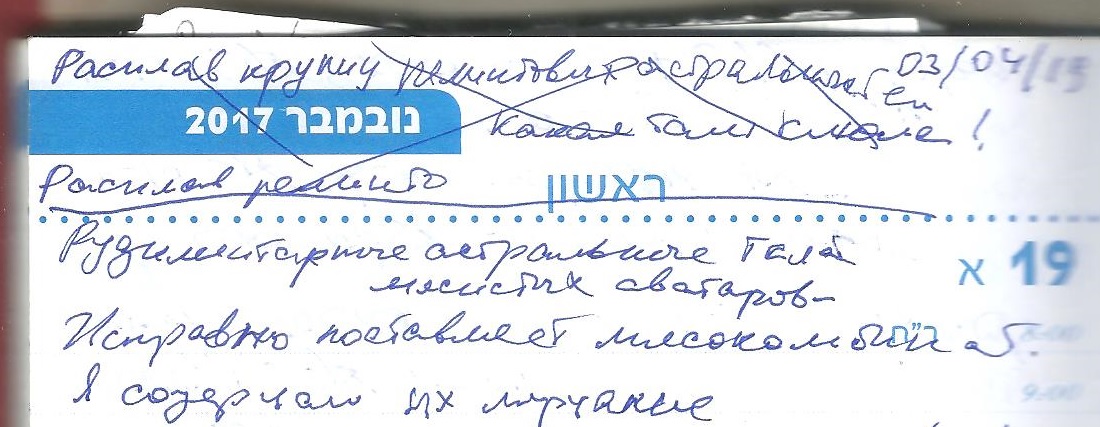 Расплав крупиц реликтовых астральных тел
03/04/19
נובמבר 2017
Какая там смола!
Расплав реликто
ראשון
Рудиментарные астральные тела
א 19
мясистых аватаров–
Исправно поставляет мясокомбинат.
8:00
Я созерцаю их мерцание
9:00